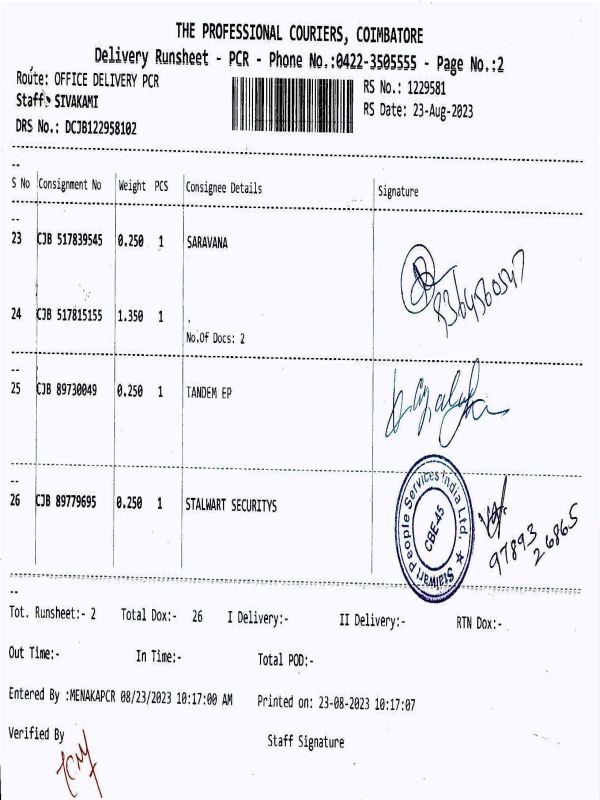 THE PROFESSIONAL COURIERS, COIMBATORE
Delivery Runsheet - PCR - Phone No.:0422-3505555 - Page No.:2
Route: OFFICE DELIVERY PCR
RS No.: 1229581
Staff: SIVAKAMI
RS Date: 23-Aug-2023
DRS No.: DCJB122958102
S No Consignment No Weight PCS Consignee Details Signature
23 CJB 517839545 0.250 1 SARAVANA
9364560547
24 CJB 517815155 1.350 1 .
No.Of Docs: 2
25 CJB 89730049 0.250 1 TANDEM EP
26 CJB 89779695 0.250 1 STALWART SECURITYS
Stalwart People Services India Ltd.
CBE-45
97893
26865
Tot. Runsheet:- 2 Total Dox:- 26 I Delivery:- II Delivery:- RTN Dox:-
Out Time:- In Time:- Total POD:-
Entered By :MENAKAPCR 08/23/2023 10:17:00 AM Printed on: 23-08-2023 10:17:07
Verified By
Staff Signature